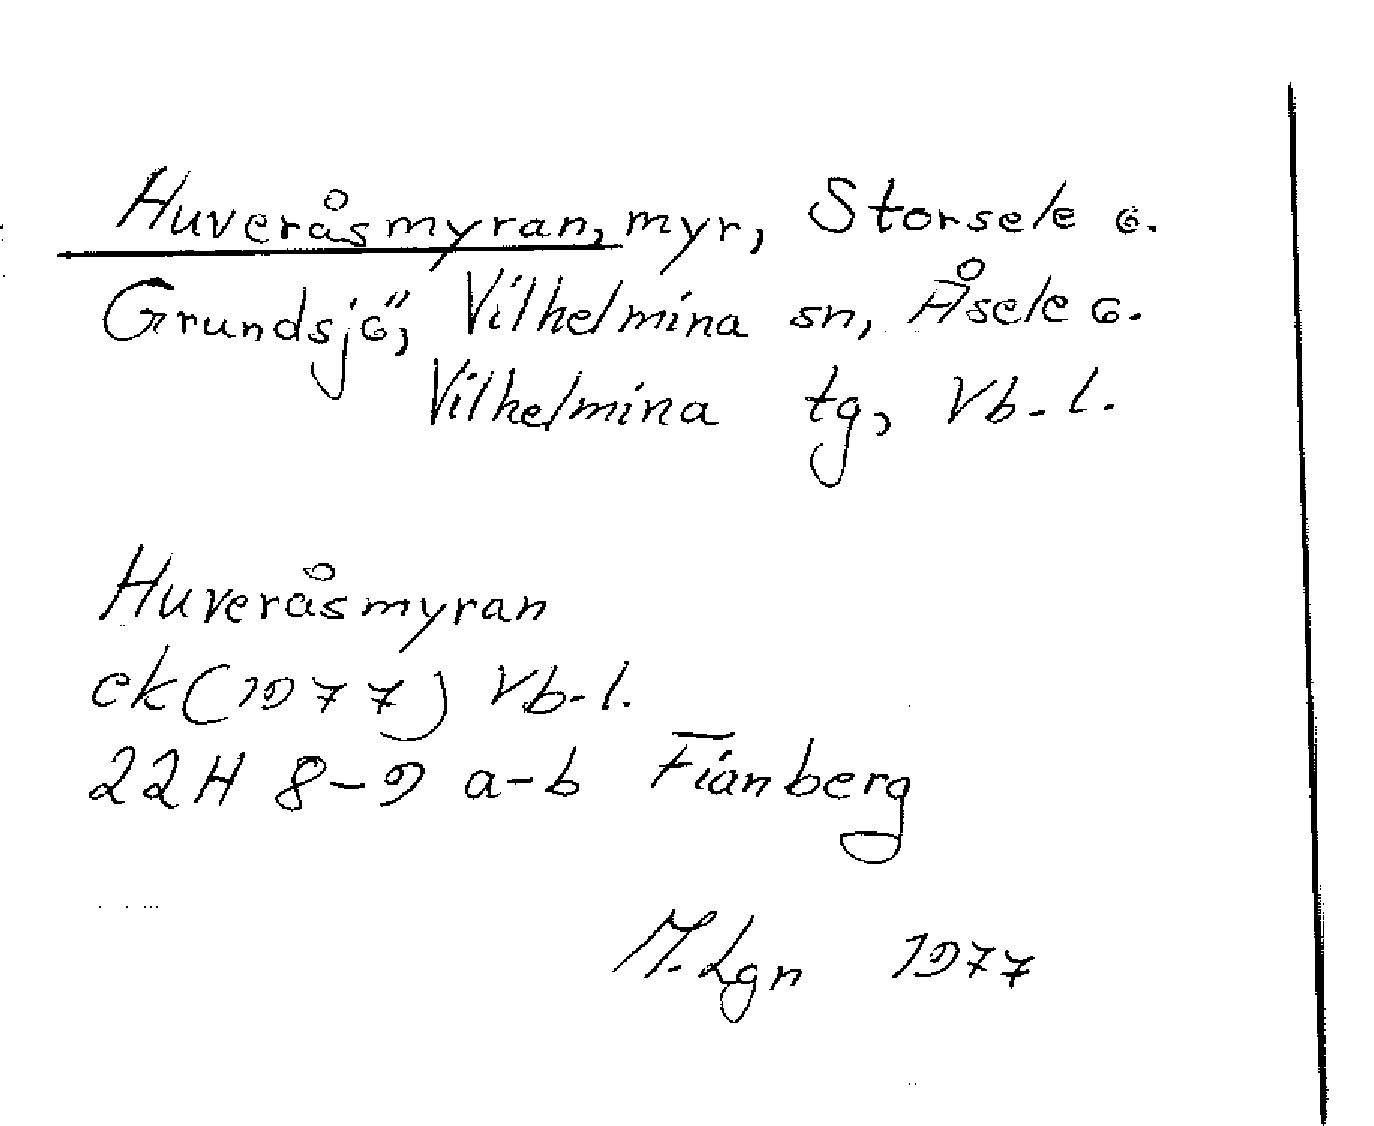 Huveråsmyran, myr, Storsele o.
Grundsjö, Vilhelmina sn, Åsele o.
Vilhelmina tg, Vb-l.
Huveråsmyran
ek (1977) Vb-l.
22H 8-9 a-b Fianberg
M.Lgn 1977